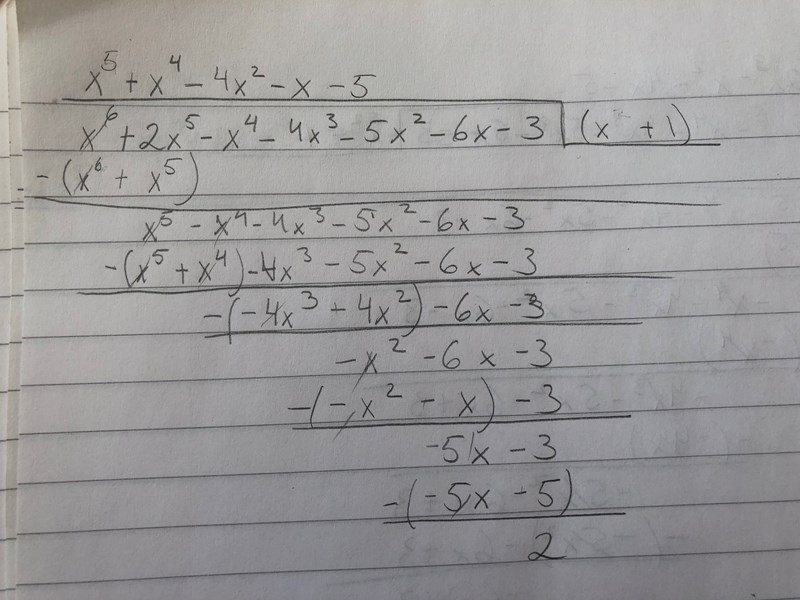 x⁵ + x⁴ - 4x² - x - 5
x⁶ + 2x⁵ - x⁴ - 4x³ - 5x² - 6x - 3 (x + 1)
- (x⁶ + x⁵)
x⁵ - x⁴ - 4x³ - 5x² - 6x - 3
-(x⁵ + x⁴) - 4x³ - 5x² - 6x - 3
-(-4x³ + 4x²) - 6x - 3
- x² - 6x - 3
-(-x² - x) - 3
-5x - 3
-(-5x - 5)
2